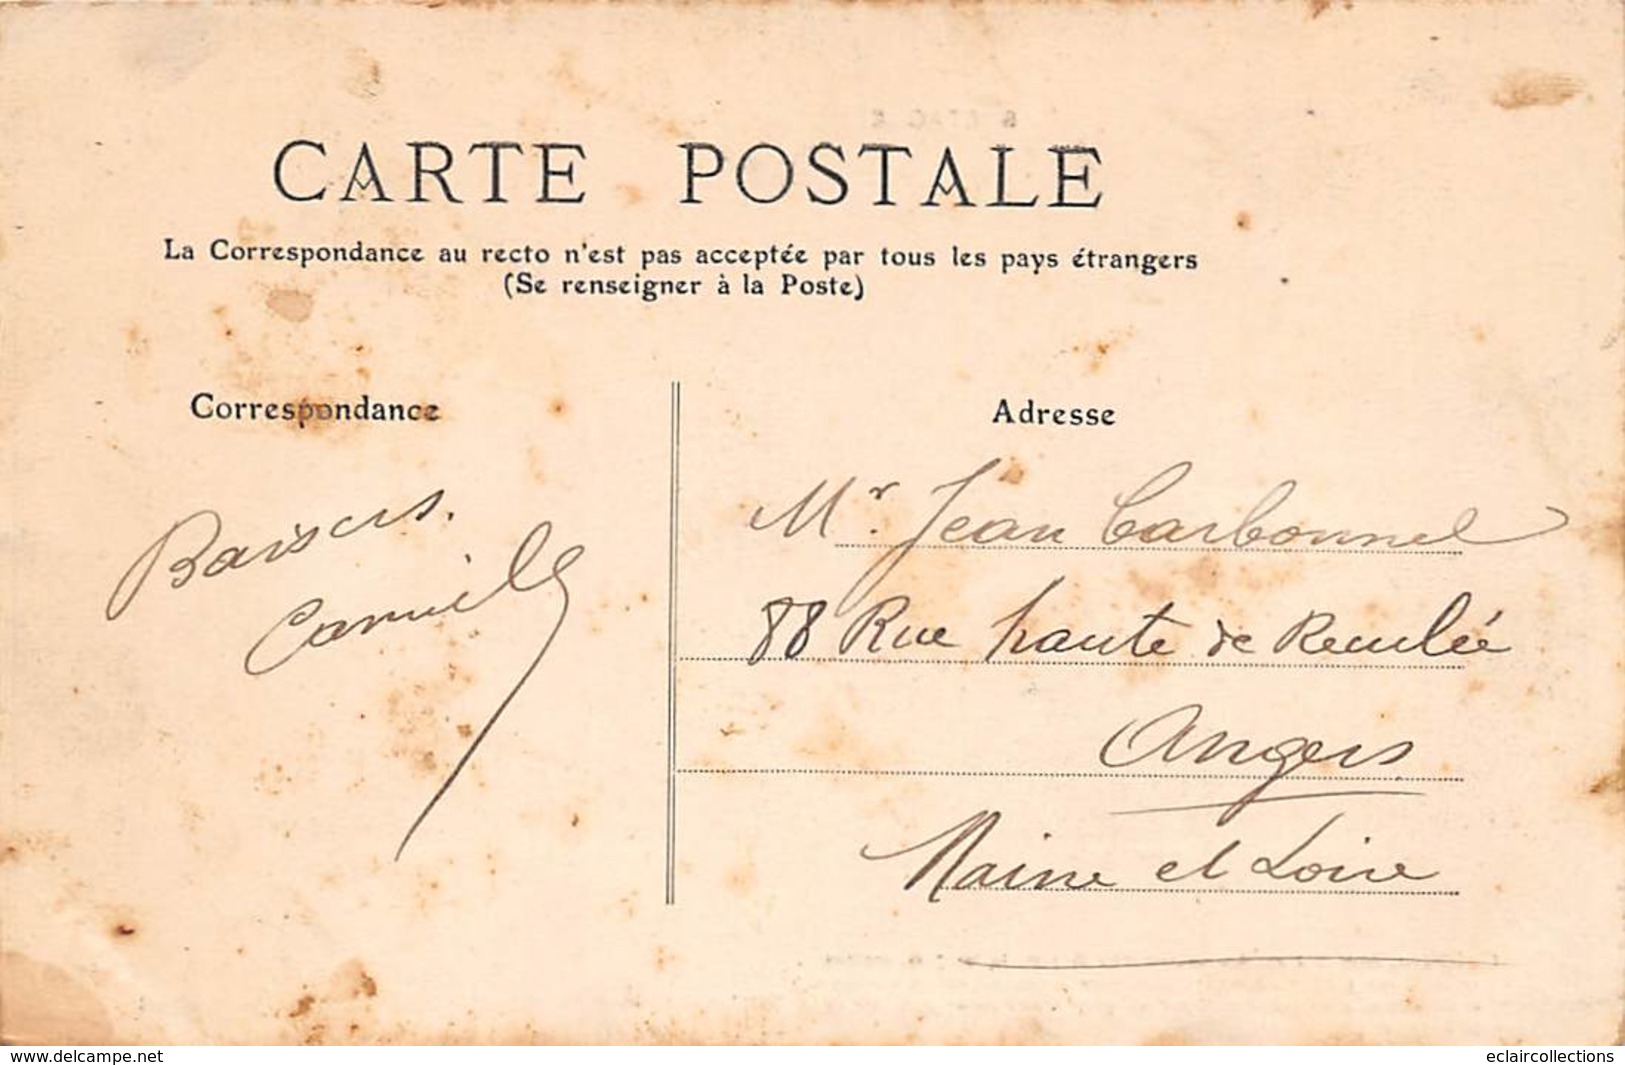 CARTE POSTALE
La Correspondance au recto n'est pas acceptée par tous les pays étrangers
(Se renseigner à la Poste)
Correspondance
Baisers.
Camille
Adresse
Mr. Jean Carbonnel
88 Rue haute de Reculée
Angers
Maine et Loire
www.delcampe.net
eclaircollections